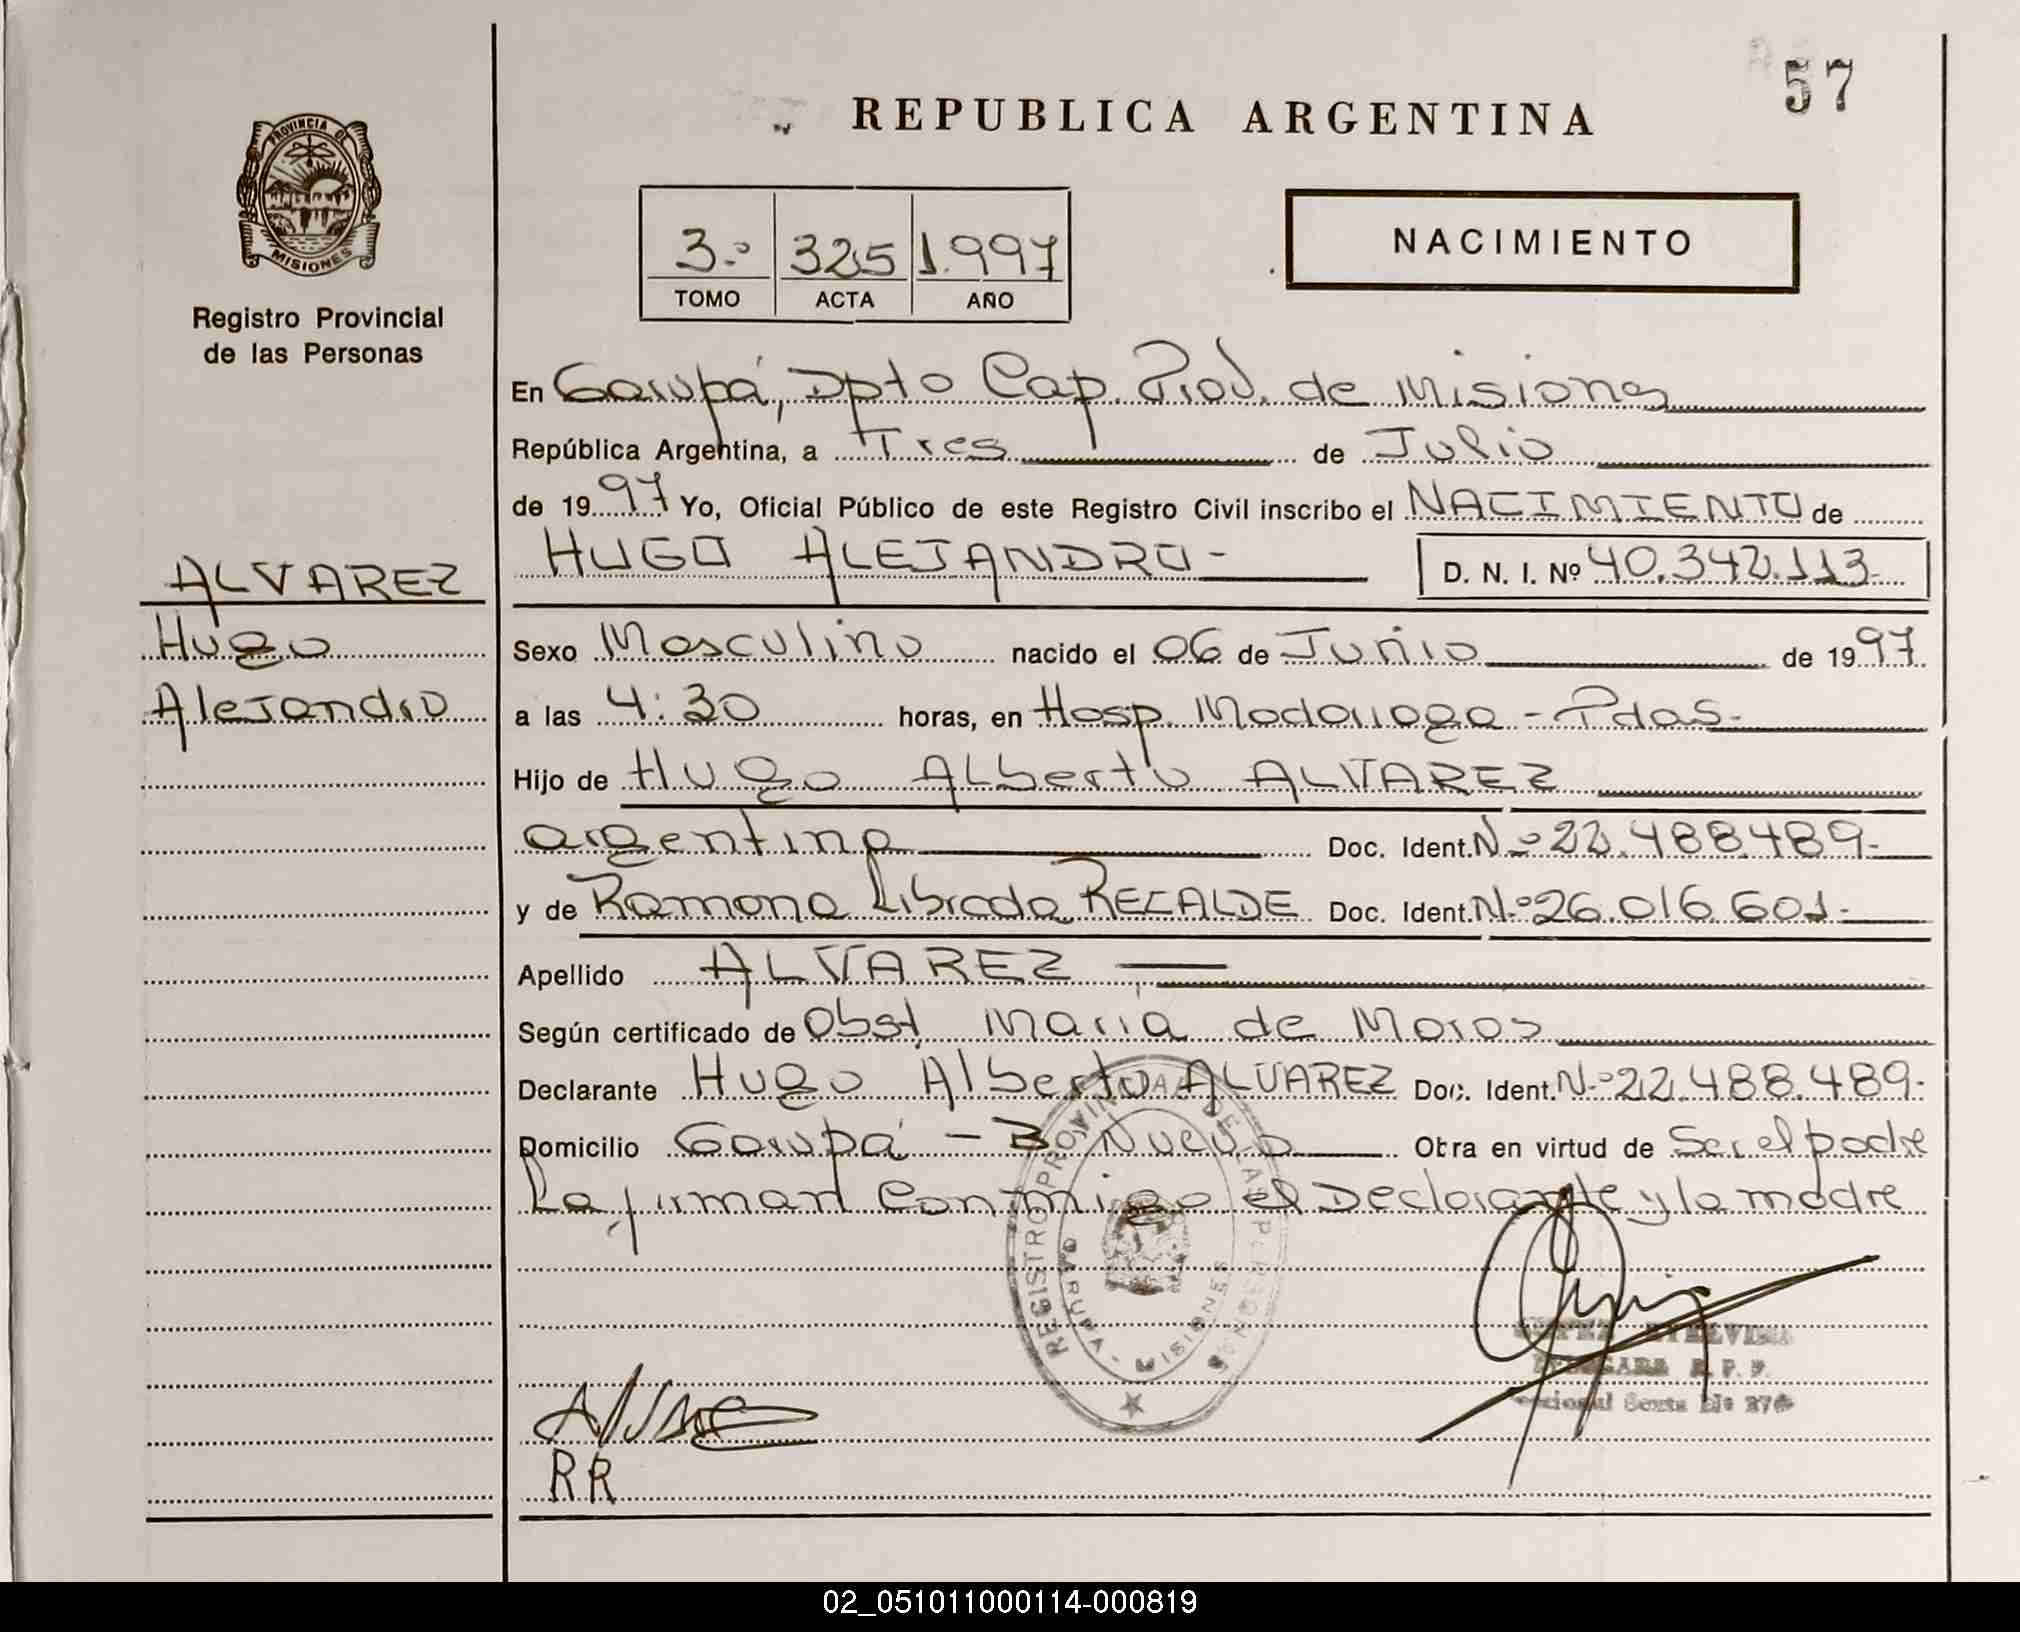 57
REPUBLICA ARGENTINA
PROVINCIA DE
MISIONES
Registro Provincial
de las Personas
3.º 325 1.997
TOMO ACTA AÑO
NACIMIENTO
En Garupá, Dpto Cap. Prov. de Misiones
República Argentina, a Tres de Julio
de 1997 Yo, Oficial Público de este Registro Civil inscribo el NACIMIENTO de
HUGO ALEJANDRO- D. N. I. Nº 40.342.113-
ALVAREZ
Hugo
Alejandro
Sexo Masculino nacido el 06 de Junio de 1997
a las 4:30 horas, en Hosp. Madariaga - Pdas.-
Hijo de Hugo Alberto ALVAREZ
argentino Doc. Ident. N.º 22.488.489-
y de Ramona Librada RECALDE Doc. Ident. N.º 26.016.601-
Apellido ALVAREZ —
Según certificado de Obst. María de Moros
Declarante Hugo Alberto ALVAREZ Doc. Ident. N.º 22.488.489-
Domicilio Garupá - B Nuevo Obra en virtud de Ser el padre
La firman conmigo el Declarante y la madre
REGISTRO PROVINCIAL DE LAS PERSONAS
GARUPA - MISIONES
DELEGADA R. P. P.
Seccional Sexta
Alvarez
RR
02_051011000114-000819